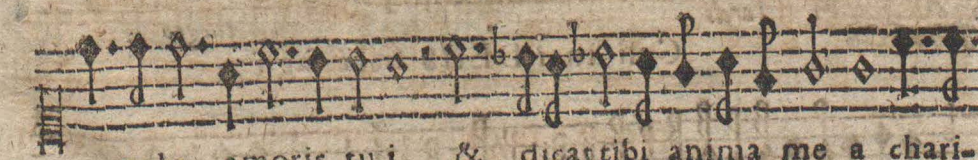 amoris tui & dicat tibi anima me a chari-